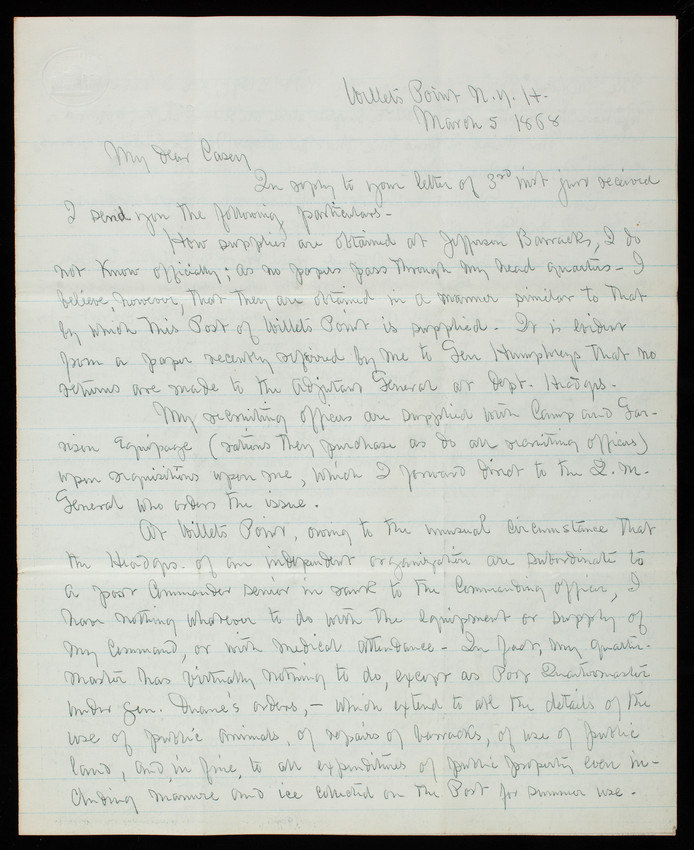 Willets Point N.Y. H.
March 5 1868
My dear Casey
In reply to your letter of 3rd inst just received
I send you the following particulars -
How supplies are obtained at Jefferson Barracks, I do
not know officially; as no papers pass through my head quarters - I
believe, however, that they are obtained in a manner similar to that
by which this Post of Willets Point is supplied. It is evident
from a paper recently referred by me to Gen Humphreys that no
returns are made to the Adjutant General at Dept. Hdqrs.
My recruiting officers are supplied with Camp and Gar-
rison Equipage (rations they purchase as do all recruiting officers)
upon requisitions upon me, which I forward direct to the Q. M.
General who orders the issue.
At Willets Point, owing to the unusual circumstance that
the Headqrs. of an independent organization are subordinate to
a post Commander senior in rank to the Commanding officer, I
have nothing whatever to do with the equipment or supply of
my command, or with medical attendance - In fact, my quarter-
master has virtually nothing to do, except as Post Quartermaster
under Gen. Duane's orders, - which extend to all the details of the
use of public animals, of repairs of barracks, of use of public
land, and in fine, to all expenditures of public property even in-
cluding manure and ice collected on the Post for summer use.